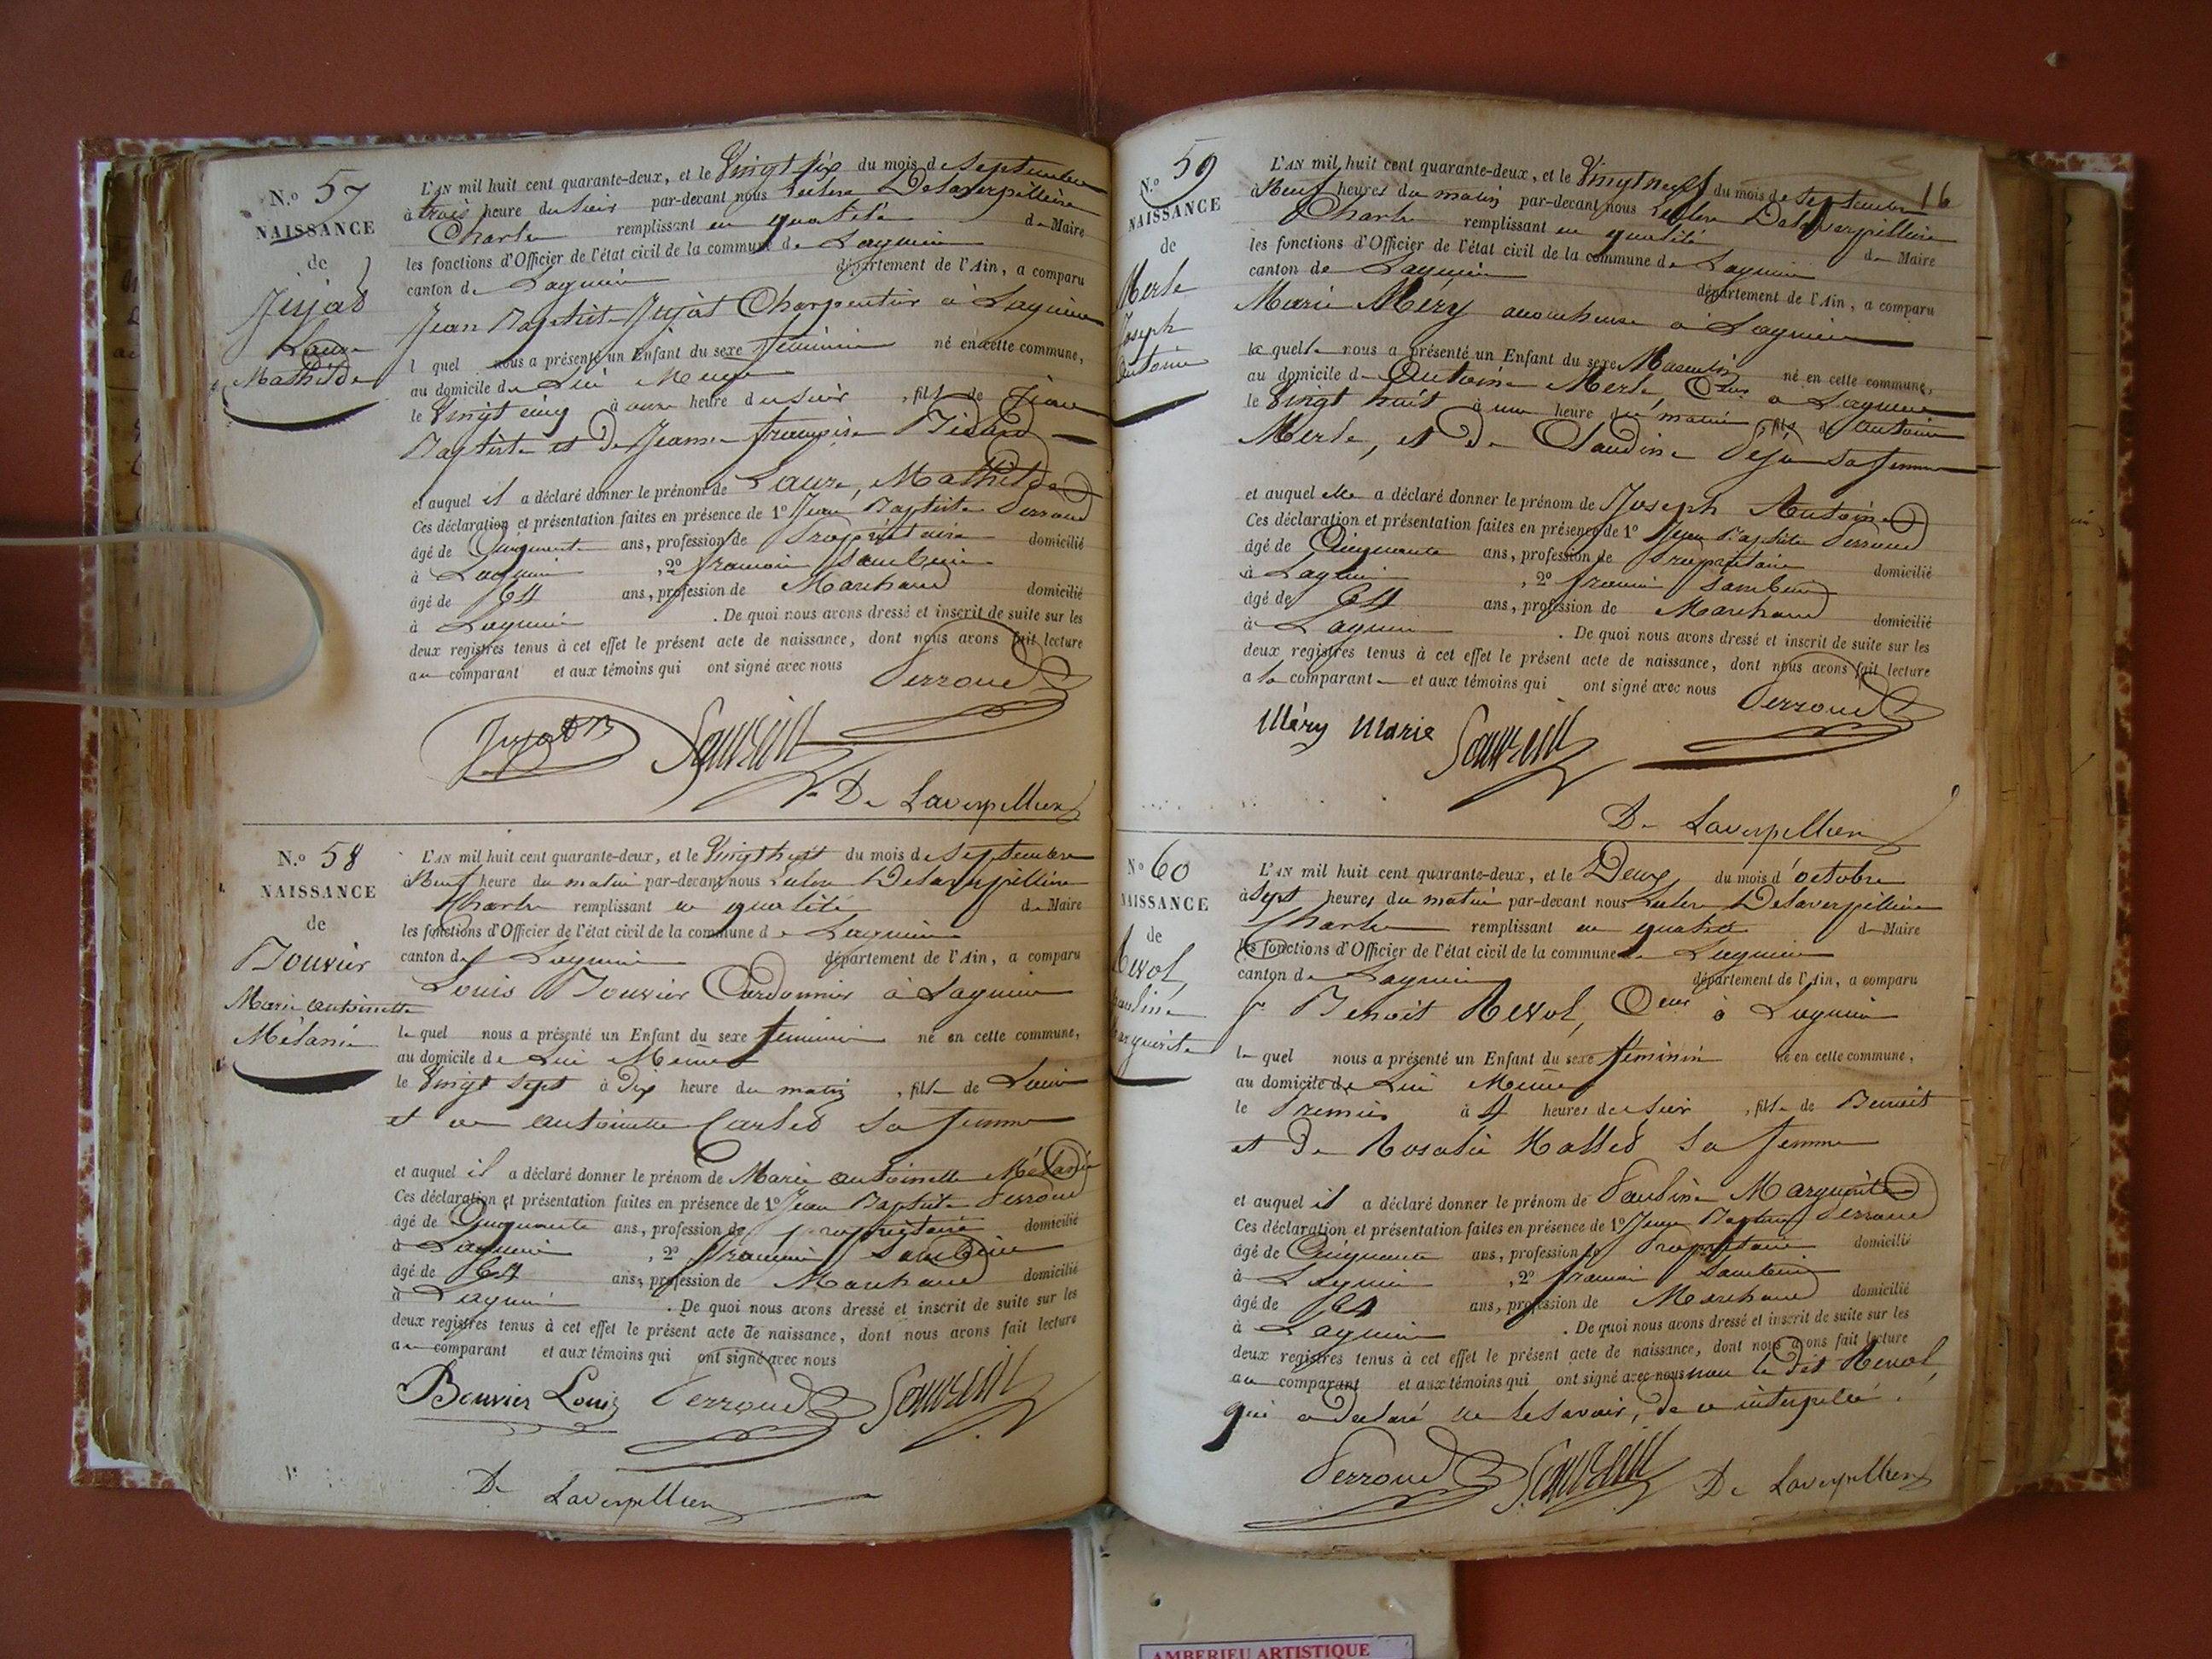 N.º 57
NAISSANCE
de
Jujat
Laure
Mathilde
L'AN mil huit cent quarante-deux, et le Vingt six du mois de Septembre
à trois heure du soir par-devant nous Leclere Delaverpillière
Charles remplissant en qualité de Maire
les fonctions d'Officier de l'état civil de la commune de Lagnieu
canton de Lagnieu département de l'Ain, a comparu
Jean Baptiste Jujat Charpentier à Lagnieu
l quel nous a présenté un Enfant du sexe féminin né en cette commune,
au domicile de Lui Meme
le Vingt cinq à onze heure du soir , fille de Jean
Baptiste et de Jeanne françoise
et auquel il a déclaré donner le prénom de Laure, Mathilde
Ces déclaration et présentation faites en présence de 1º Jean Baptiste Perroud
âgé de Cinquante ans, profession de Propriétaire domicilié
à Lagnieu , 2º françois
âgé de 64 ans, profession de Marchand domicilié
à Lagnieu . De quoi nous avons dressé et inscrit de suite sur les
deux registres tenus à cet effet le présent acte de naissance, dont nous avons fait lecture
au comparant et aux témoins qui ont signé avec nous
Perroud
Jujat B
De Laverpillière
N.º 58
NAISSANCE
de
Bouvier
Marie antoinette
Mélanie
L'AN mil huit cent quarante-deux, et le Vingt huit du mois de Septembre
à Neuf heure du matin par-devant nous Leclere Delaverpillière
Charles remplissant en qualité de Maire
les fonctions d'Officier de l'état civil de la commune de Lagnieu
canton de Lagnieu département de l'Ain, a comparu
Louis Bouvier Cordonnier à Lagnieu
le quel nous a présenté un Enfant du sexe féminin né en cette commune,
au domicile de Lui Meme
le Vingt Sept à dix heure du matin , fille de Louis
et de antoinette sa femme
et auquel il a déclaré donner le prénom de Marie antoinette Mélanie
Ces déclaration et présentation faites en présence de 1º Jean Baptiste Perroud
âgé de Cinquante ans, profession de propriétaire domicilié
à Lagnieu , 2º françois
âgé de 64 ans, profession de Marchand domicilié
à Lagnieu . De quoi nous avons dressé et inscrit de suite sur les
deux registres tenus à cet effet le présent acte de naissance, dont nous avons fait lecture
au comparant et aux témoins qui ont signé avec nous
Bouvier Louis Perroud
De Laverpillière
16
N.º 59
NAISSANCE
de
Merle
Joseph
Antoine
L'AN mil huit cent quarante-deux, et le Vingt neuf du mois de Septembre
à Neuf heures du matin par-devant nous Leclere Delaverpillière
Charles remplissant en qualité de Maire
les fonctions d'Officier de l'état civil de la commune de Lagnieu
canton de Lagnieu département de l'Ain, a comparu
Marie Méry accoucheuse à Lagnieu
la quelle nous a présenté un Enfant du sexe Masculin né en cette commune,
au domicile d' Antoine Merle, à Lagnieu
le Vingt huit à une heure du matin , fils d' Antoine
Merle, et de Claudine sa femme
et auquel elle a déclaré donner le prénom de Joseph Antoine
Ces déclaration et présentation faites en présence de 1º Jean Baptiste Perroud
âgé de Cinquante ans, profession de Propriétaire domicilié
à Lagnieu , 2º françois
âgé de 64 ans, profession de Marchand domicilié
à Lagnieu . De quoi nous avons dressé et inscrit de suite sur les
deux registres tenus à cet effet le présent acte de naissance, dont nous avons fait lecture
a la comparante et aux témoins qui ont signé avec nous
Perroud
Méry Marie
De Laverpillière
Nº 60
NAISSANCE
de
Revol
L'AN mil huit cent quarante-deux, et le Deux du mois d'octobre
à Sept heures du matin par-devant nous Leclere Delaverpillière
Charles remplissant en qualité de Maire
les fonctions d'Officier de l'état civil de la commune de Lagnieu
canton de Lagnieu département de l'Ain, a comparu
Benoit Revol, à Lagnieu
le quel nous a présenté un Enfant du sexe féminin né en cette commune,
au domicile de Lui Meme
le Premier à 4 heures du Soir , fille de Benoit
et de Rosalie sa femme
et auquel il a déclaré donner le prénom de Pauline Marguerite
Ces déclaration et présentation faites en présence de 1º Jean Baptiste Perroud
âgé de Cinquante ans, profession de Propriétaire domicilié
à Lagnieu , 2º françois
âgé de 64 ans, profession de Marchand domicilié
à Lagnieu . De quoi nous avons dressé et inscrit de suite sur les
deux registres tenus à cet effet le présent acte de naissance, dont nous avons fait lecture
au comparant et aux témoins qui ont signé avec nous non le dit Revol,
qui a déclaré ne le savoir, de ce interpellé.
Perroud De Laverpillière
AMBERIEU ARTISTIQUE